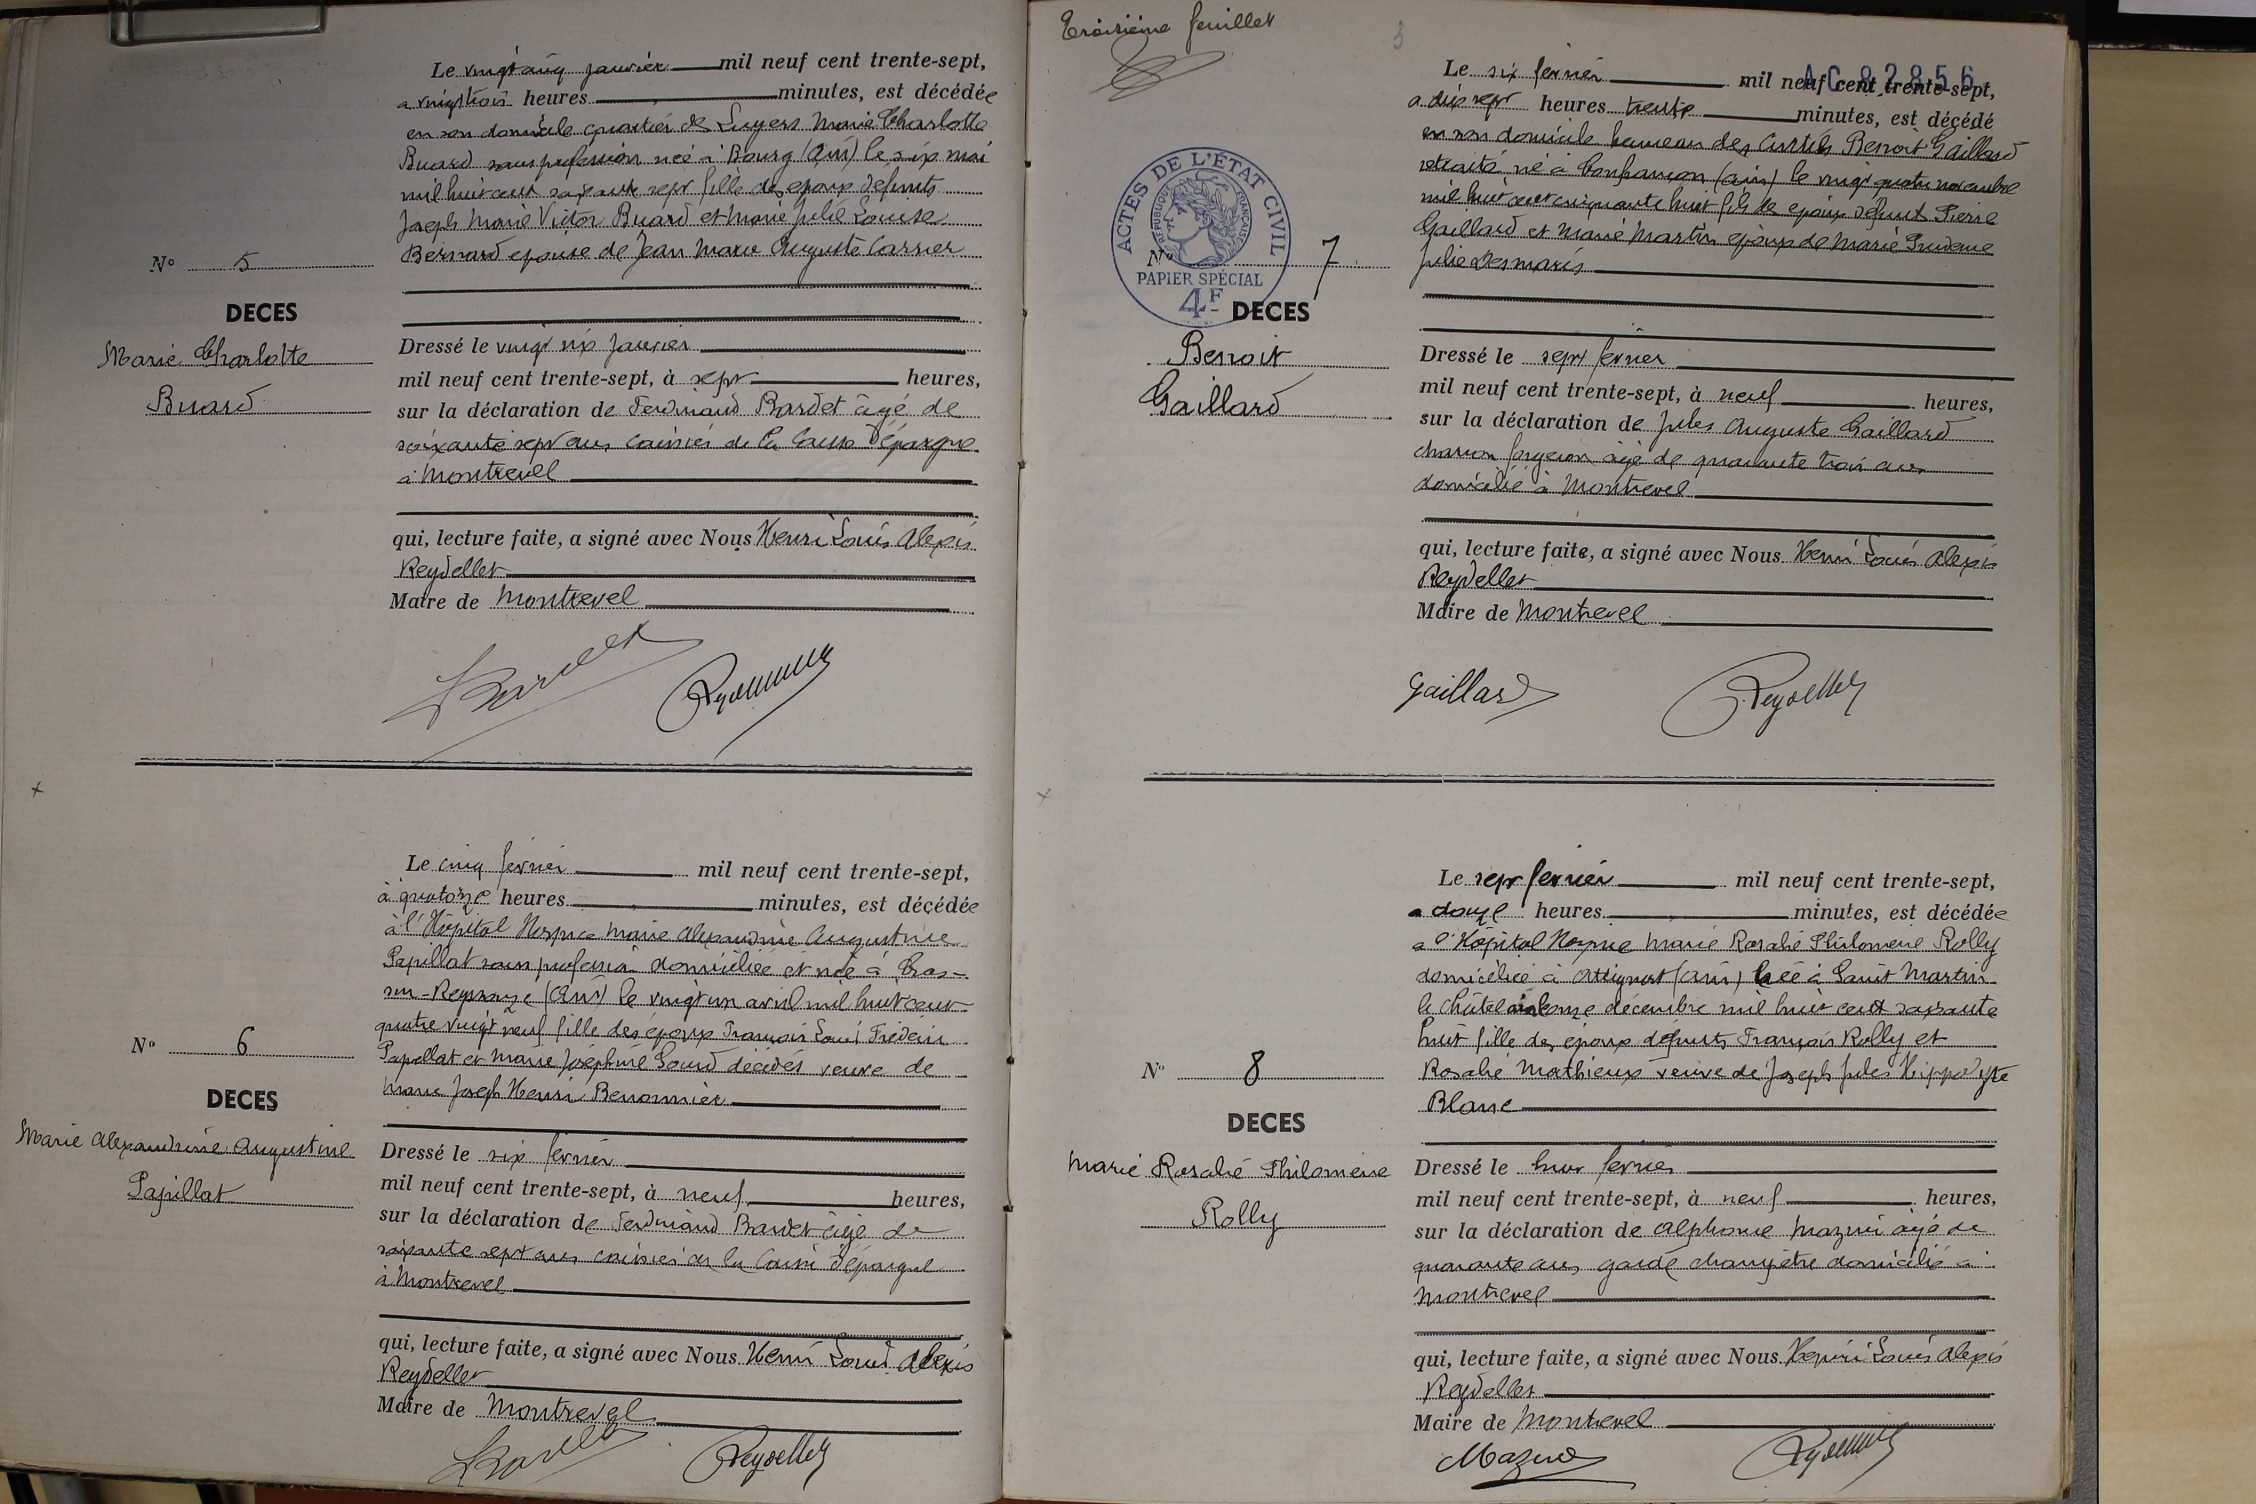 Le vingt cinq janvier mil neuf cent trente-sept,
a vingt trois heures minutes, est décédée
en son domicile quartier de Luyers Marie Charlotte
Buard sans profession née à Bourg (Ain) le six mai
mil huit cent soixante sept fille des epoux défunts
Joseph Marie Victor Buard et Marie Julie Louise
Bernard epouse de Jean Marie Auguste Carrier
N° 5
DECES
Marie Charlotte
Buard
Dressé le vingt six janvier
mil neuf cent trente-sept, à sept heures,
sur la déclaration de Ferdinand Bardet âgé de
soixante sept ans caissier de la Caisse d'épargne
à Montrevel
qui, lecture faite, a signé avec Nous Henri Louis Alexis
Reydellet
Maire de Montrevel
Bardet Reydellet
Le cinq fevrier mil neuf cent trente-sept,
à quatorze heures minutes, est décédée
à l'Hôpital Hospice Marie Alexandrine Augustine
Papillat sans profession domiciliée et née à Cras-
sur-Reyssouze (Ain) le vingt un avril mil huit cent
quatre vingt neuf fille des époux François Louis Frédéric
Papillat et Marie Joséphine Sourd décédés veuve de
Marie Joseph Henri Benonnier
N° 6
DECES
Marie Alexandrine Augustine
Papillat
Dressé le six fevrier
mil neuf cent trente-sept, à neuf heures,
sur la déclaration de Ferdinand Bardet âgé de
soixante sept ans caissier de la Caisse d'épargne
à Montrevel
qui, lecture faite, a signé avec Nous Henri Louis Alexis
Reydellet
Maire de Montrevel
Bardet Reydellet
Troisième feuillet
3
AC 82856
Le six fevrier mil neuf cent trente-sept,
a dix sept heures trente minutes, est décédé
en son domicile hameau des Curtils Benoit Gaillard
retraité né à Confrançon (Ain) le vingt quatre novembre
mil huit cent cinquante huit fils des epoux défunts Pierre
Gaillard et Marie Martin epoux de Marie
Julie Desmaris
ACTES DE L'ÉTAT CIVIL
RÉPUBLIQUE FRANÇAISE
N° 7
PAPIER SPÉCIAL
4F
DECES
Benoit
Gaillard
Dressé le sept fevrier
mil neuf cent trente-sept, à neuf heures,
sur la déclaration de Jules Auguste Gaillard
charron forgeron âgé de quarante trois ans
domicilié à Montrevel
qui, lecture faite, a signé avec Nous Henri Louis Alexis
Reydellet
Maire de Montrevel
Gaillard Reydellet
Le sept fevrier mil neuf cent trente-sept,
a douze heures minutes, est décédée
a l'Hôpital Hospice Marie Rosalie Philomène Rolly
domiciliée à Attignat (Ain) née à Saint Martin
le Châtel le onze décembre mil huit cent soixante
huit fille des époux défunts François Rolly et
Rosalie Mathieux veuve de Joseph Jules Hippolyte
Blanc
N° 8
DECES
Marie Rosalie Philomène
Rolly
Dressé le huit fevrier
mil neuf cent trente-sept, à neuf heures,
sur la déclaration de Alphonse Mazuir âgé de
quarante ans garde champêtre domicilié à
Montrevel
qui, lecture faite, a signé avec Nous Henri Louis Alexis
Reydellet
Maire de Montrevel
Mazuir Reydellet